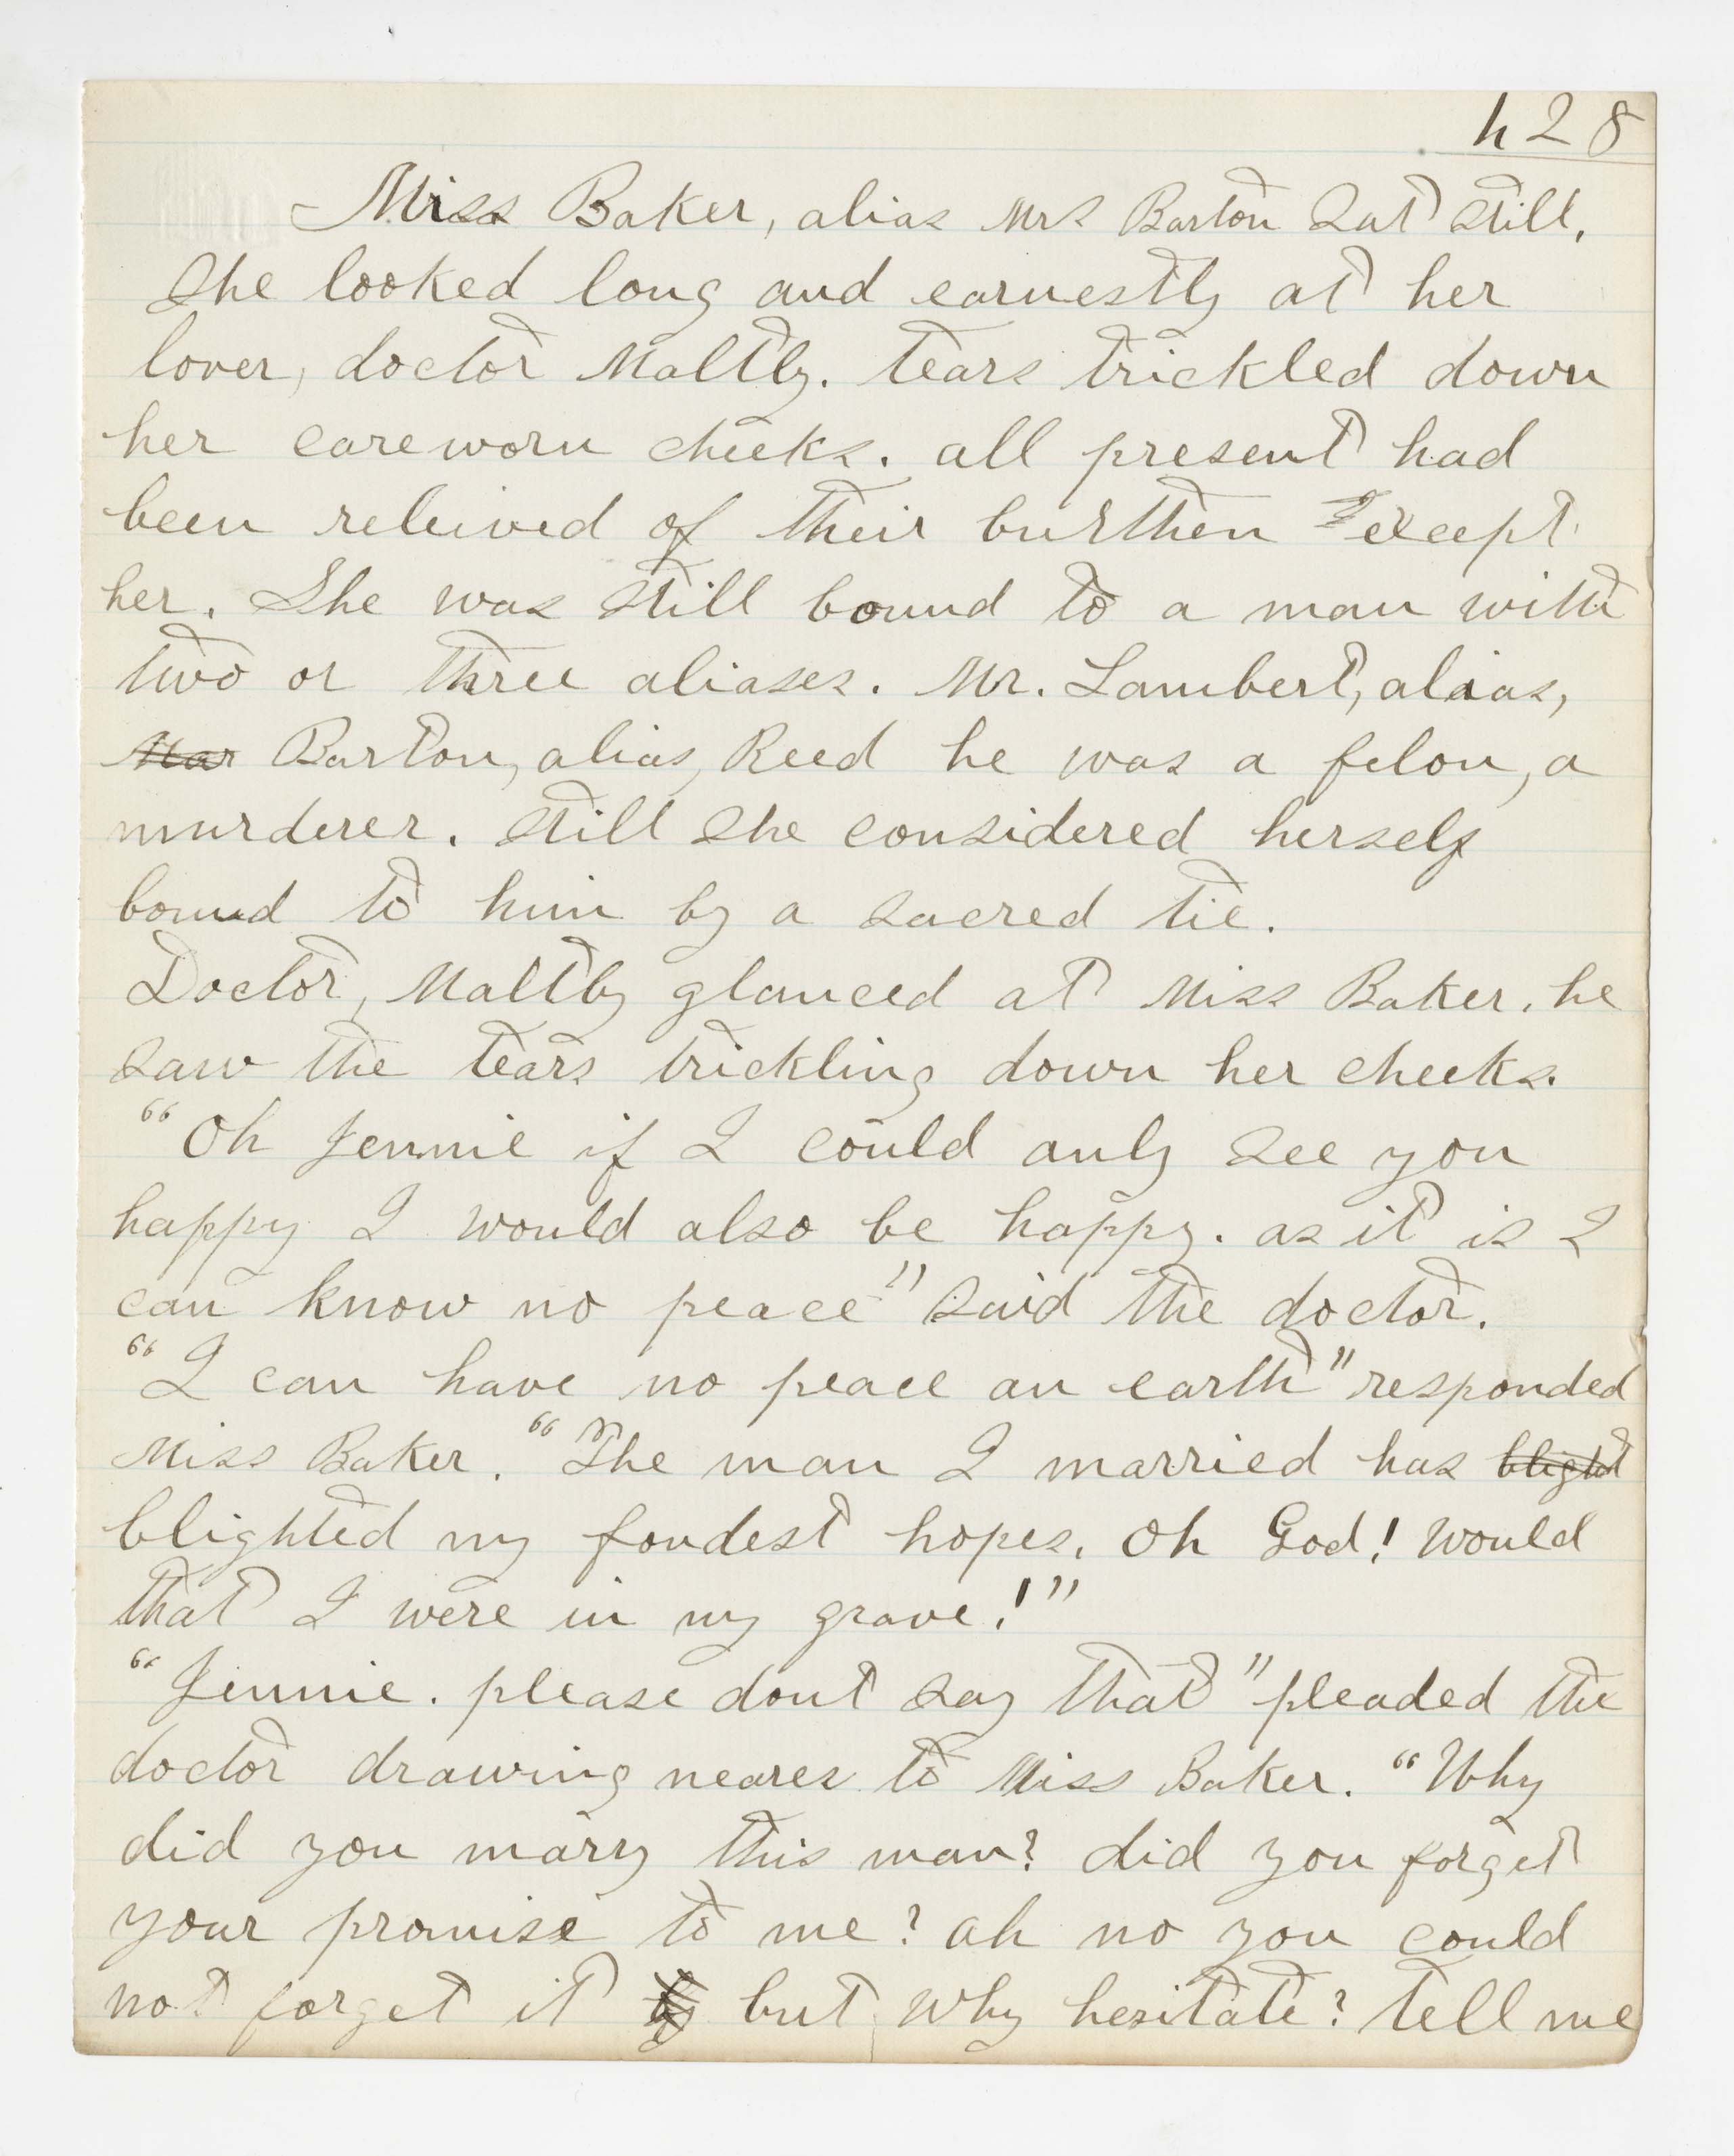 428
Miss Baker, alias Mrs Barton sat still.
She looked long and earnestly at her
lover, doctor Maltby. tears trickled down
her careworn cheeks. all present had
been releived of their burthen except
her. She was still bound to a man with
two or three aliases. Mr. Lambert, alias,
Mar Barton, alias, Reed he was a felon, a
murderer. still she considered herself
bound to him by a sacred tie.
Doctor, Maltby glanced at Miss Baker. he
saw the tears trickling down her cheeks.
"Oh Jennie if I could only see you
happy I would also be happy. as it is I
can know no peace" said the doctor.
"I can have no peace on earth" responded
Miss Baker. "The man I married has blight
blighted my fondest hopes. Oh God! would
that I were in my grave!"
"Jennie. please dont say that" pleaded the
doctor drawing nearer to Miss Baker. "Why
did you marry this man? did you forget
your promise to me? ah no you could
not forget it but why hesitate? tell me